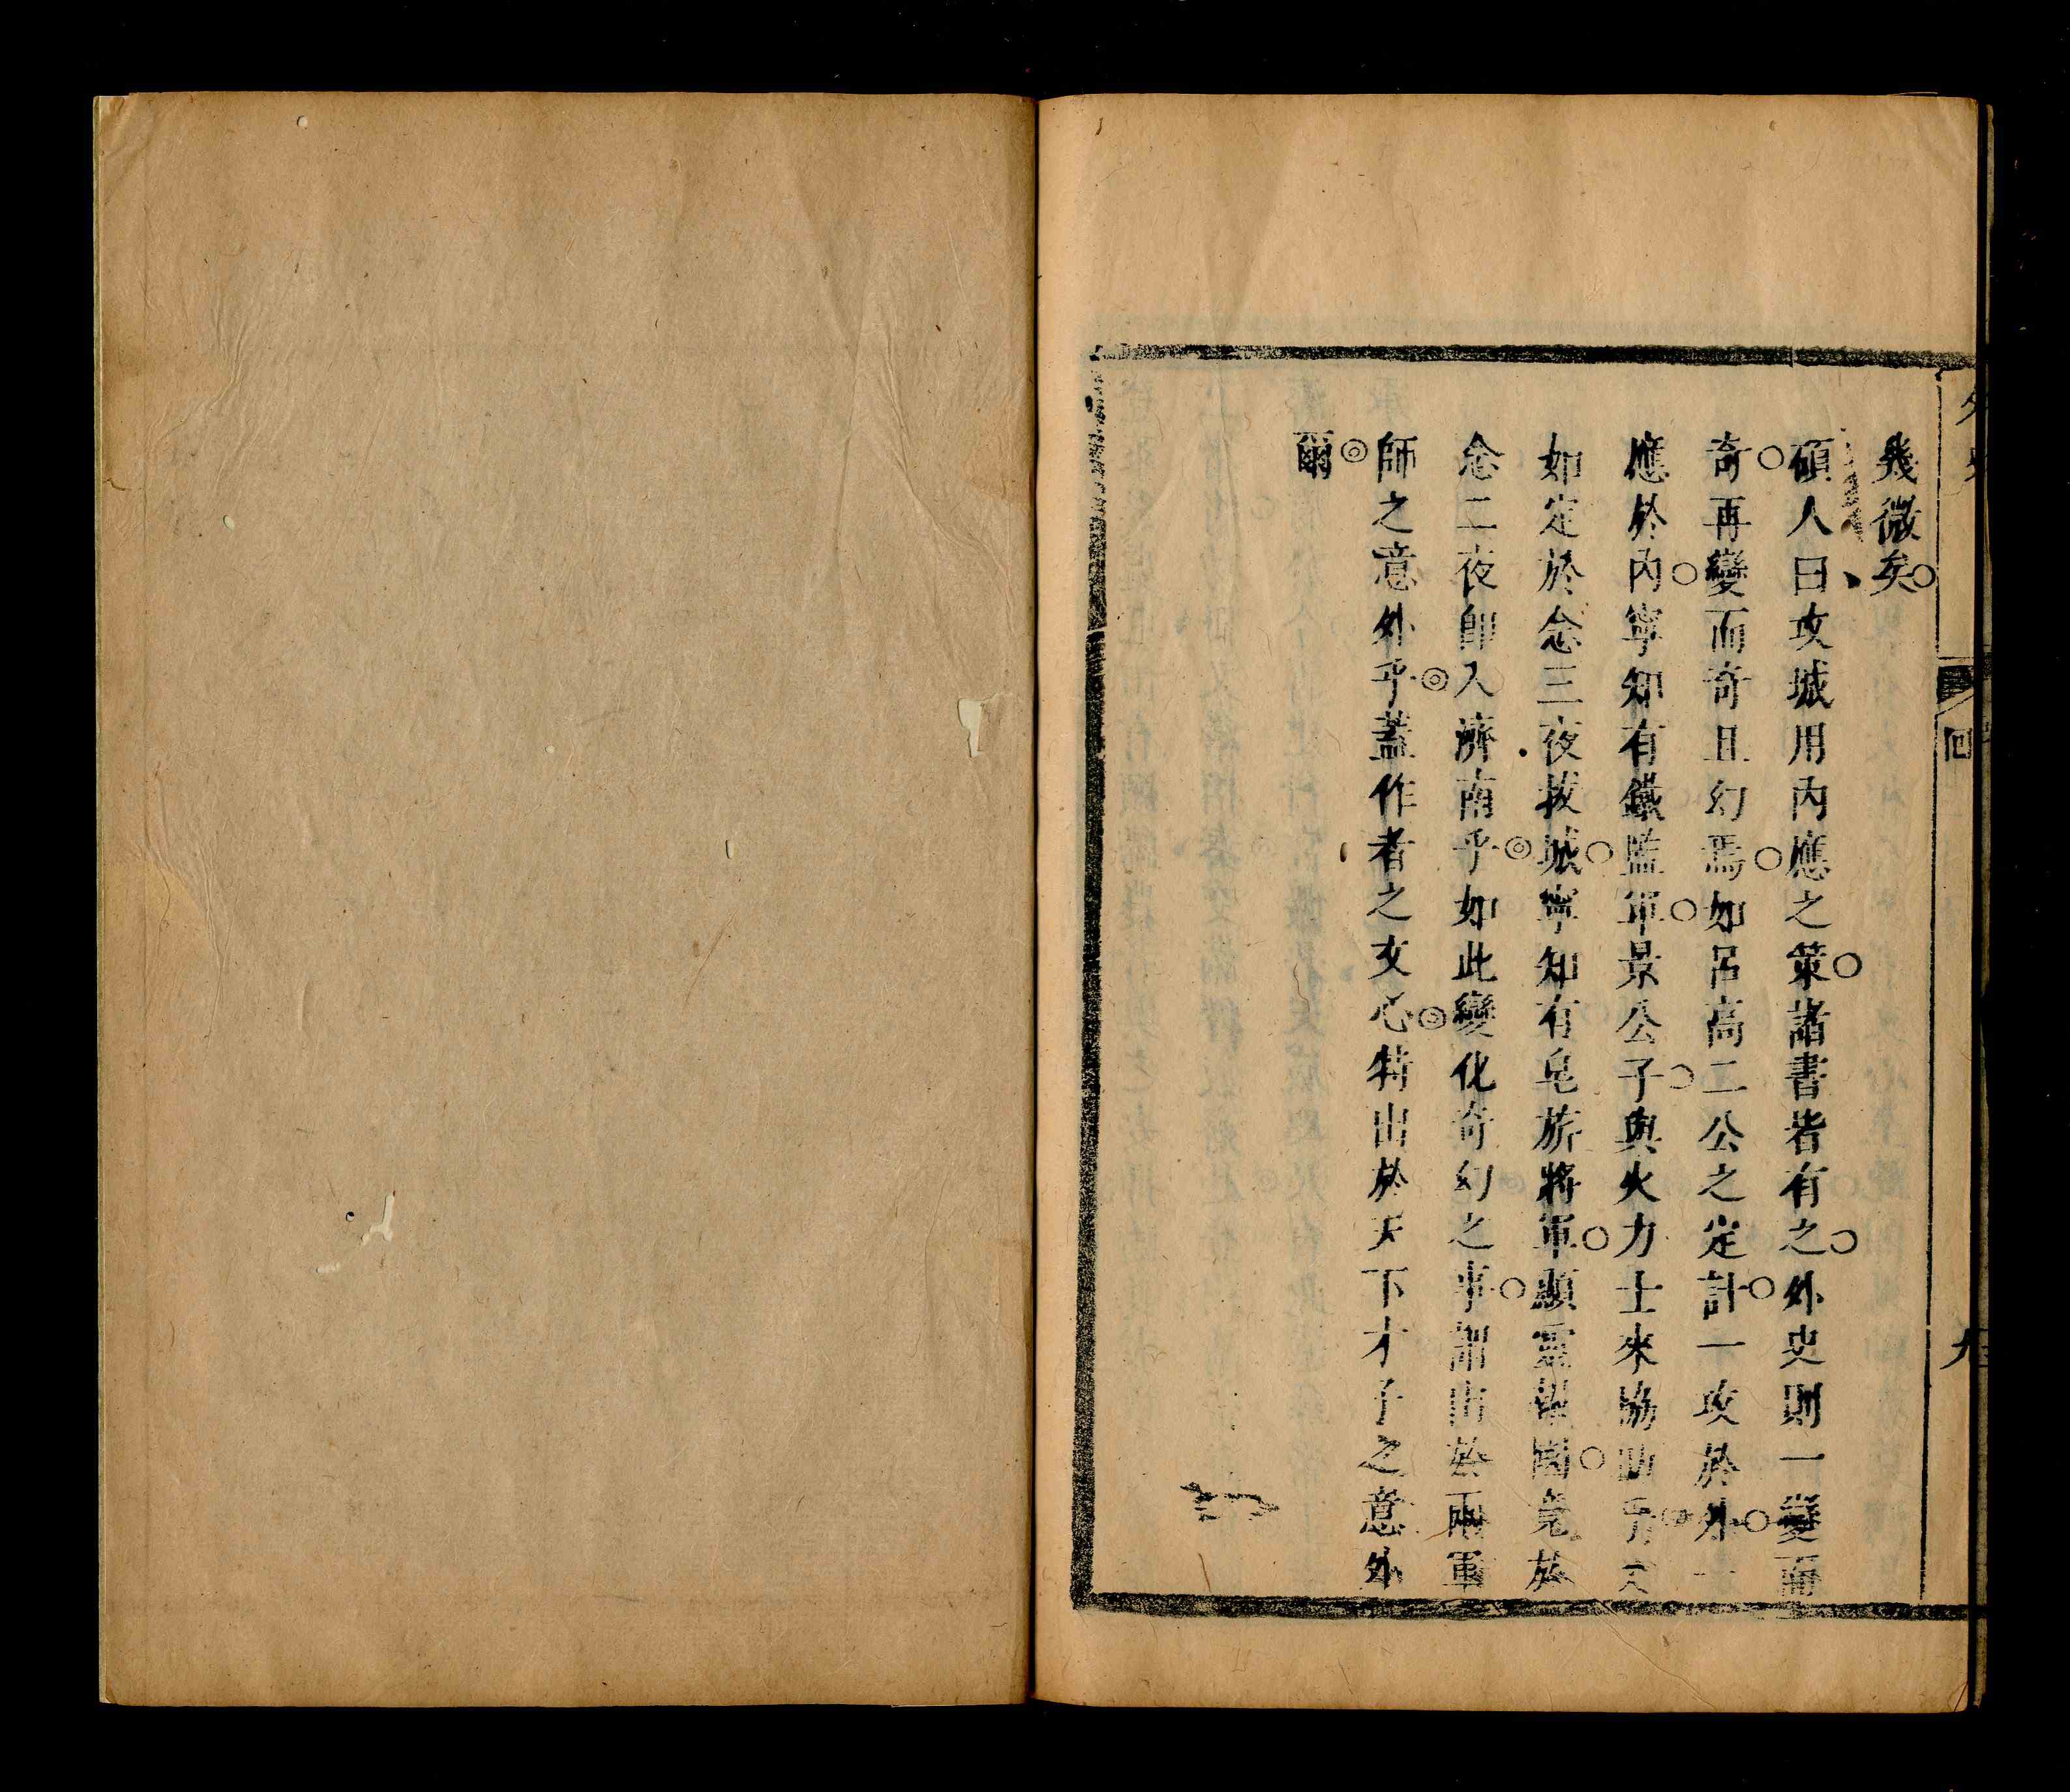 幾微矣
碩人曰攻城用內應之策諸書皆有之外史則一變而
奇再變而奇且幻焉如呂高二公之定計一攻於外一
應於內寧知有鐵監軍景公子與火力士來協助乎
如定於念三夜拔城寧知有皂旂將軍顯靈 國竟於
念二夜即入濟南乎如此變化奇幻之事 出於兩軍
師之意外乎蓋作者之文心特出於天下才子之意外
爾
回
九